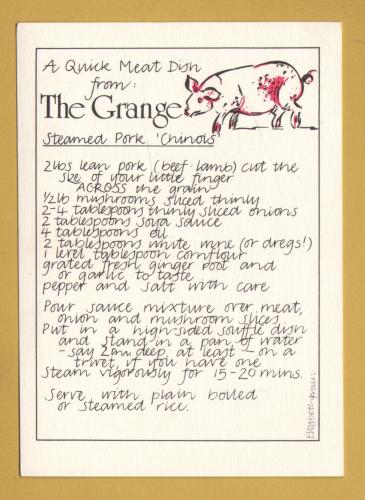 A Quick Meat Dish
from:
The Grange
Steamed Pork 'Chinois
2lbs lean pork (beef: lamb) cut the
size of your little finger
ACROSS the grain
½lb mushrooms sliced thinly
2-4 tablespoons thinly sliced onions
2 tablespoons soya sauce
4 tablespoons oil
2 tablespoons white wine (or dregs!)
1 level tablespoon cornflour
grated fresh ginger root and
or garlic to taste
pepper and salt with care
Pour sauce mixture over meat,
onion and mushroom slices
Put in a high-sided soufflé dish
and stand in a pan of water
- say 2ins deep, at least - on a
trivet, if you have one
Steam vigorously for 15-20 mins.
Serve with plain boiled
or steamed rice.